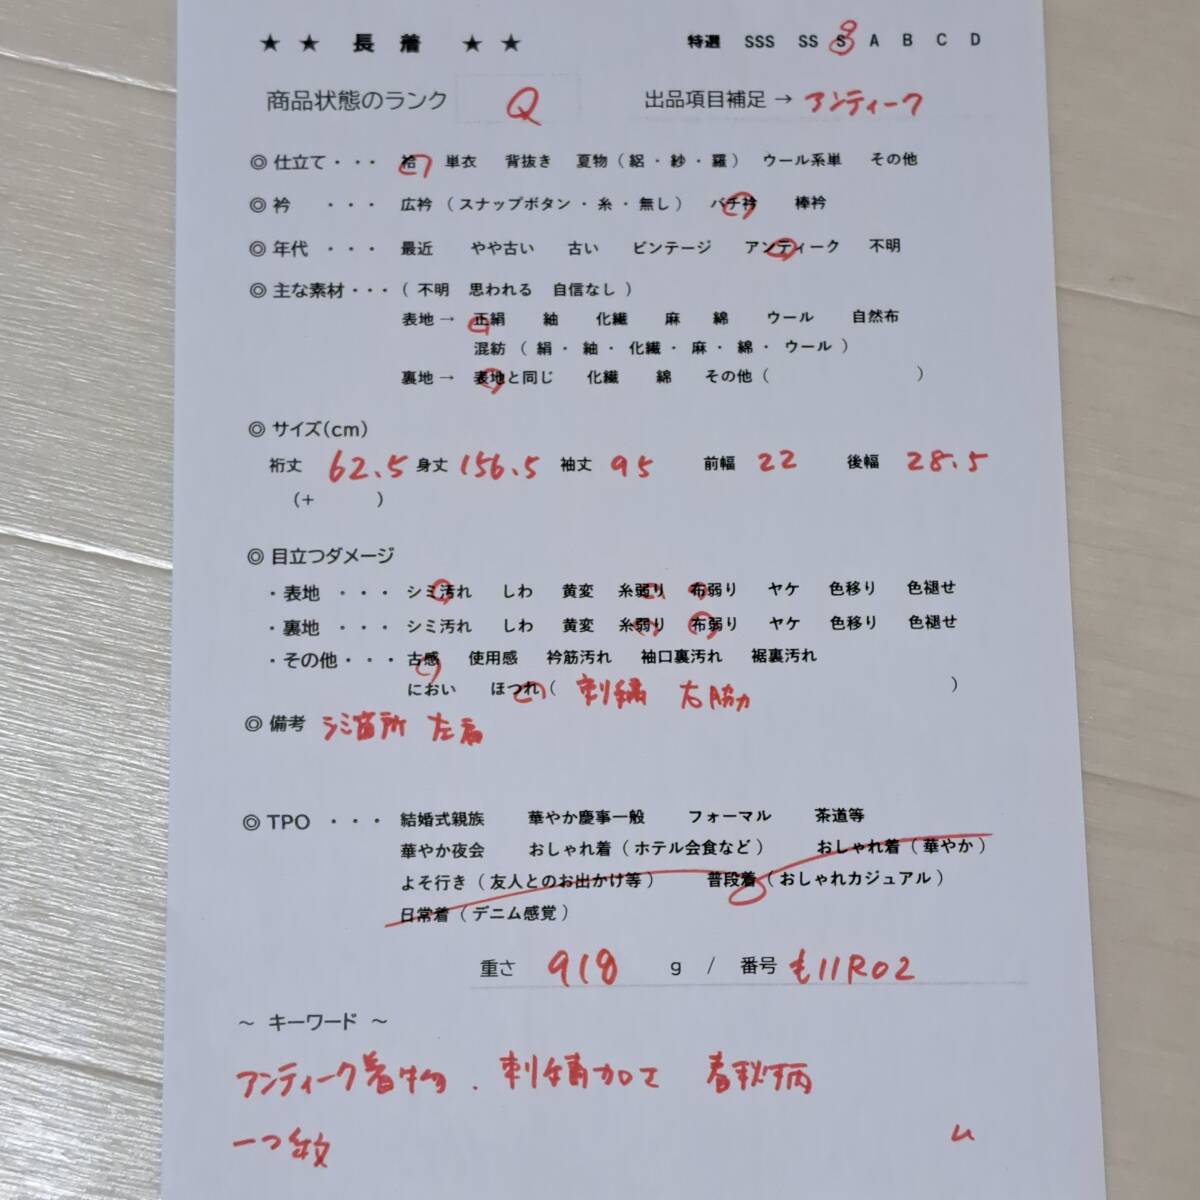 ★ ★ 長 着 ★ ★ 特選 SSS SS S A B C D
商品状態のランク Q 出品項目補足 → アンティーク
◎ 仕立て・・・ 袷 単衣 背抜き 夏物 ( 絽・紗・羅 ) ウール系単 その他
◎ 衿 ・・・ 広衿 ( スナップボタン・糸・無し ) バチ衿 棒衿
◎ 年代 ・・・ 最近 やや古い 古い ビンテージ アンティーク 不明
◎ 主な素材・・・ ( 不明 思われる 自信なし )
表地 → 正絹 紬 化繊 麻 綿 ウール 自然布
混紡 ( 絹・紬・化繊・麻・綿・ウール )
裏地 → 表地と同じ 化繊 綿 その他 ( )
◎ サイズ(cm)
裄丈 62.5 身丈 156.5 袖丈 95 前幅 22 後幅 28.5
(+ )
◎ 目立つダメージ
・表地 ・・・ シミ汚れ しわ 黄変 糸弱り 布弱り ヤケ 色移り 色褪せ
・裏地 ・・・ シミ汚れ しわ 黄変 糸弱り 布弱り ヤケ 色移り 色褪せ
・その他・・・ 古感 使用感 衿筋汚れ 袖口裏汚れ 裾裏汚れ
におい ほつれ ( 刺繍 右脇 )
◎ 備考 シミ箇所 左肩
◎ TPO ・・・ 結婚式親族 華やか慶事一般 フォーマル 茶道等
華やか夜会 おしゃれ着 ( ホテル会食など ) おしゃれ着 ( 華やか )
よそ行き ( 友人とのお出かけ等 ) 普段着 ( おしゃれカジュアル )
日常着 ( デニム感覚 )
重さ 918 g / 番号 も11R02
～ キーワード ～
アンティーク着物 . 刺繍加工 春秋柄
一つ紋